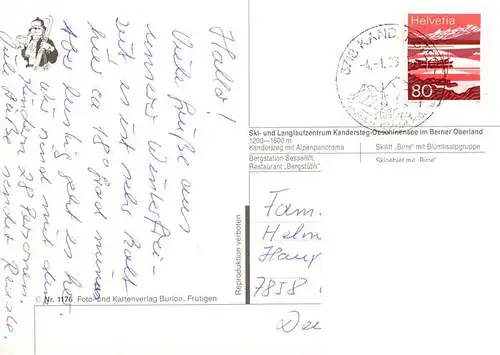 Hallo!
Viele Grüße aus
unserer Winterfrei-
zeit, es ist sehr kalt
hier ca 18° grad minus
Aber lustig geht es her
wir sind mit den
Kindern 28 Personen.
Viele Grüße sendet Renate.
Helvetia
80
3718 KANDERSTEG
Ski- und Langlaufzentrum Kandersteg-Oeschinensee im Berner Oberland
1200–1600 m
Kandersteg mit Alpenpanorama
Skilift „Birre“ mit Blümlisalpgruppe
Bergstation Sessellift,
Restaurant „Bergstübli“
Skigebiet mit „Birre“
Reproduktion verboten
Fam.
Helm
7858
© Nr. 1176 Foto- und Kartenverlag Burlon, Frutigen